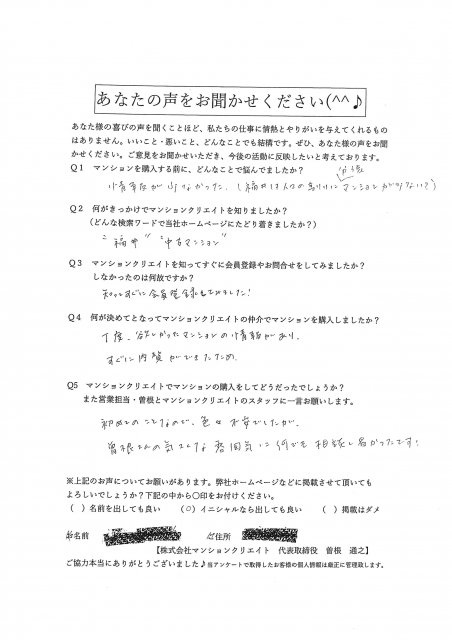 あなたの声をお聞かせください(^^♪
あなた様の喜びの声を聞くことほど、私たちの仕事に情熱とやりがいを与えてくれるもの
はありません。いいこと・悪いこと、どんなことでも結構です。ぜひ、あなた様の声をお聞
かせください。ご意見をお聞かせいただき、今後の活動に反映したいと考えております。
Q1 マンションを購入する前に、どんなことで悩んでましたか?
情報が少なかった。(福井は人口の割りにマンションが少ない?)
Q2 何がきっかけでマンションクリエイトを知りましたか?
(どんな検索ワードで当社ホームページにたどり着きましたか?)
"福井" "中古マンション"
Q3 マンションクリエイトを知ってすぐに会員登録やお問合せをしてみましたか?
しなかったのは何故ですか?
知ってすぐに会員登録をしてみました!
Q4 何が決めてとなってマンションクリエイトの仲介でマンションを購入しましたか?
丁度、欲しかったマンションの情報があり、
すぐに内覧ができたため。
Q5 マンションクリエイトでマンションの購入をしてどうだったでしょうか?
また営業担当・曽根とマンションクリエイトのスタッフに一言お願いします。
初めてのことなので、色々不安でしたが、
曽根さんの気さくな雰囲気に何でも相談し易かったです!
※上記のお声についてお願いがあります。弊社ホームページなどに掲載させて頂いても
よろしいでしょうか?下記の中から○印をお付けください。
( )名前を出しても良い (○)イニシャルなら出しても良い ( )掲載はダメ
お名前 ご住所
【株式会社マンションクリエイト 代表取締役 曽根 通之】
ご協力本当にありがとうございました♪当アンケートで取得したお客様の個人情報は厳正に管理致します。